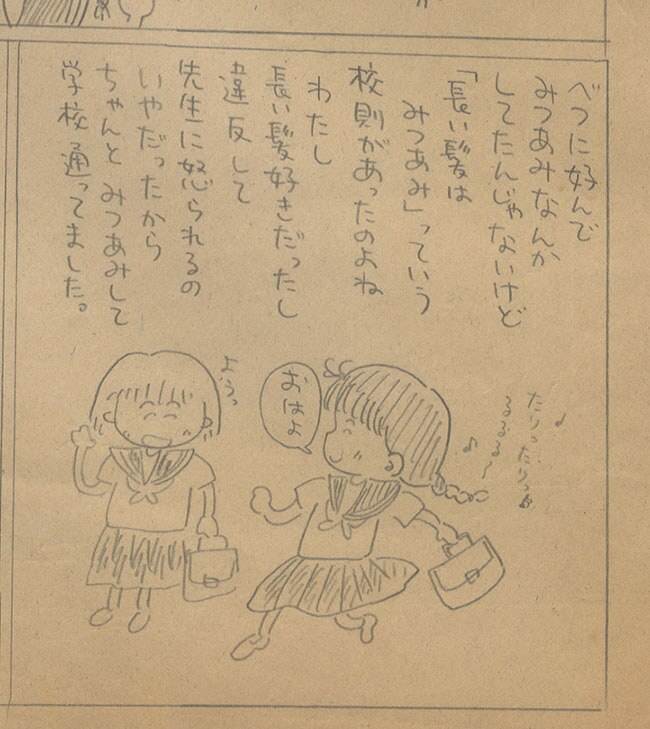 べつに好んで
みつあみなんか
してたんじゃないけど
「長い髪は
みつあみ」っていう
校則があったのよね
わたし
長い髪好きだったし
違反して
先生に怒られるの
いやだったから
ちゃんとみつあみして
学校通ってました。
たりったりっ♪
るるる〜
おはよ
ようっ